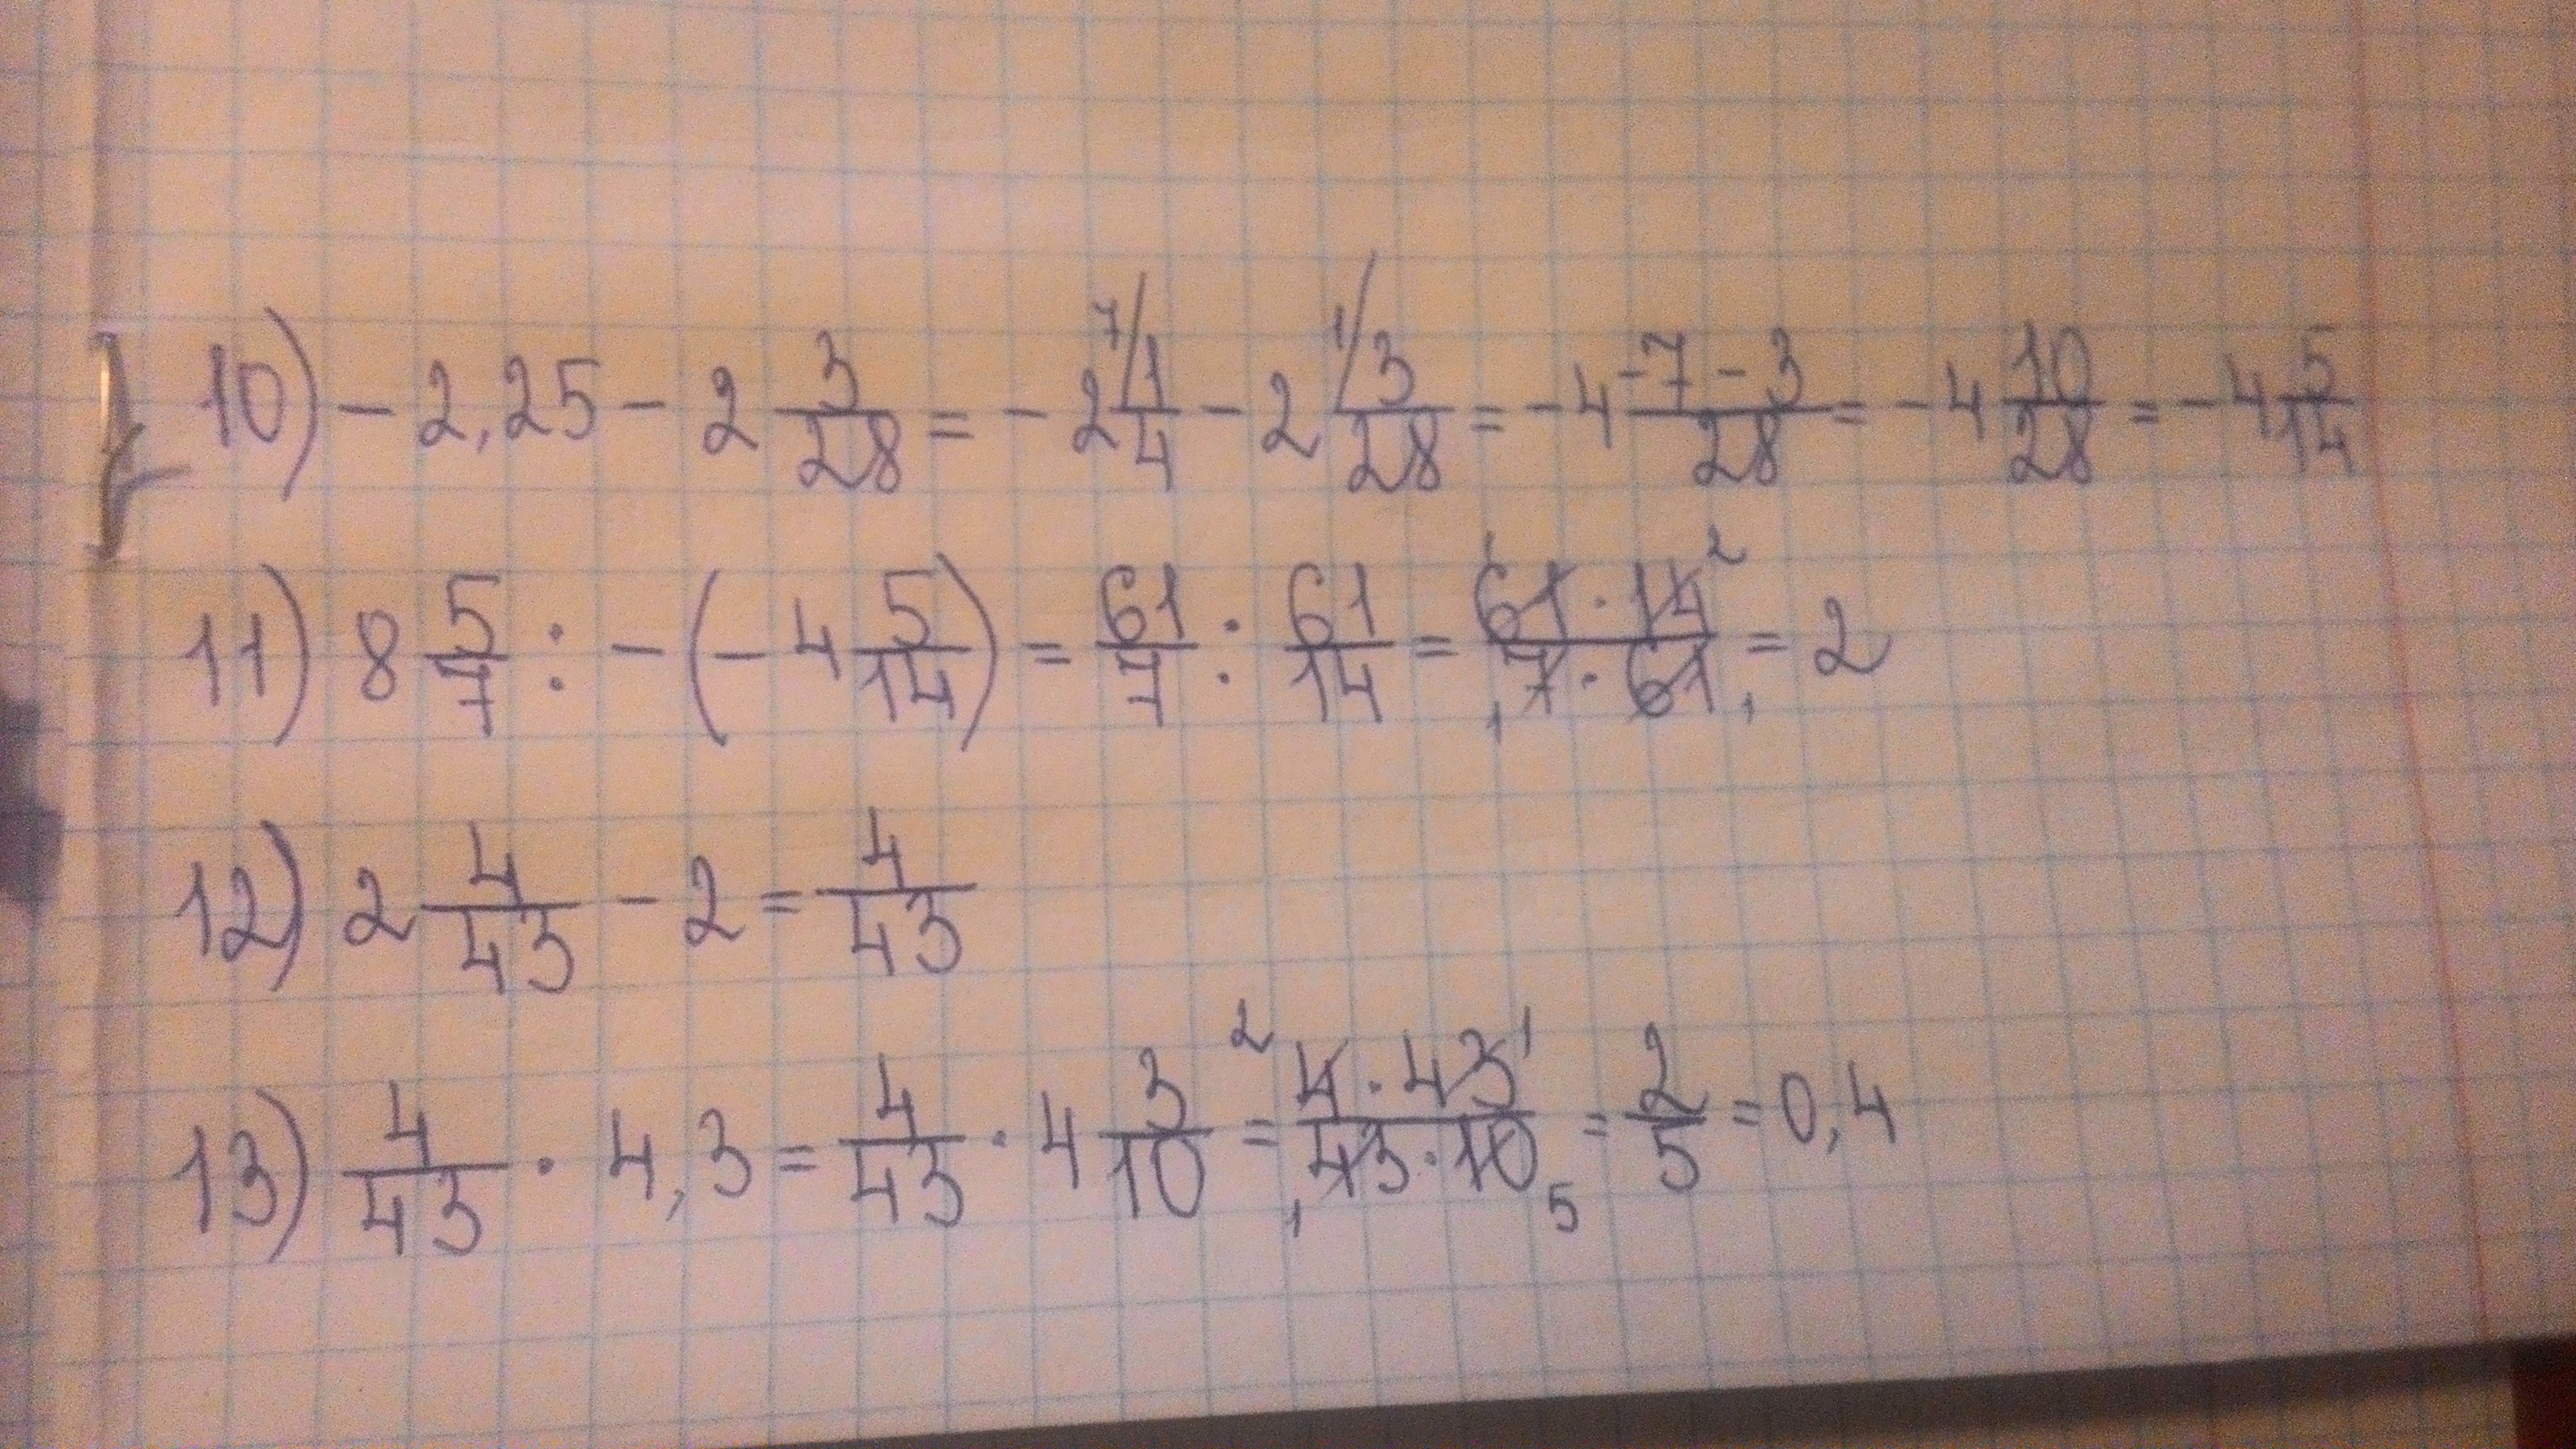 10) - 2,25 - 2 3/28 = - 2 ⁷/1/4 - 2 ¹/3/28 = - 4 (-7 - 3)/28 = - 4 10/28 = - 4 5/14
11) 8 5/7 : - (- 4 5/14) = 61/7 : 61/14 = (¹61 · 14²)/(₁7 · 61₁) = 2
12) 2 4/43 - 2 = 4/43
13) 4/43 · 4,3 = 4/43 · 4 3/10 = (²4 · 43¹)/(₁43 · 10₅) = 2/5 = 0,4